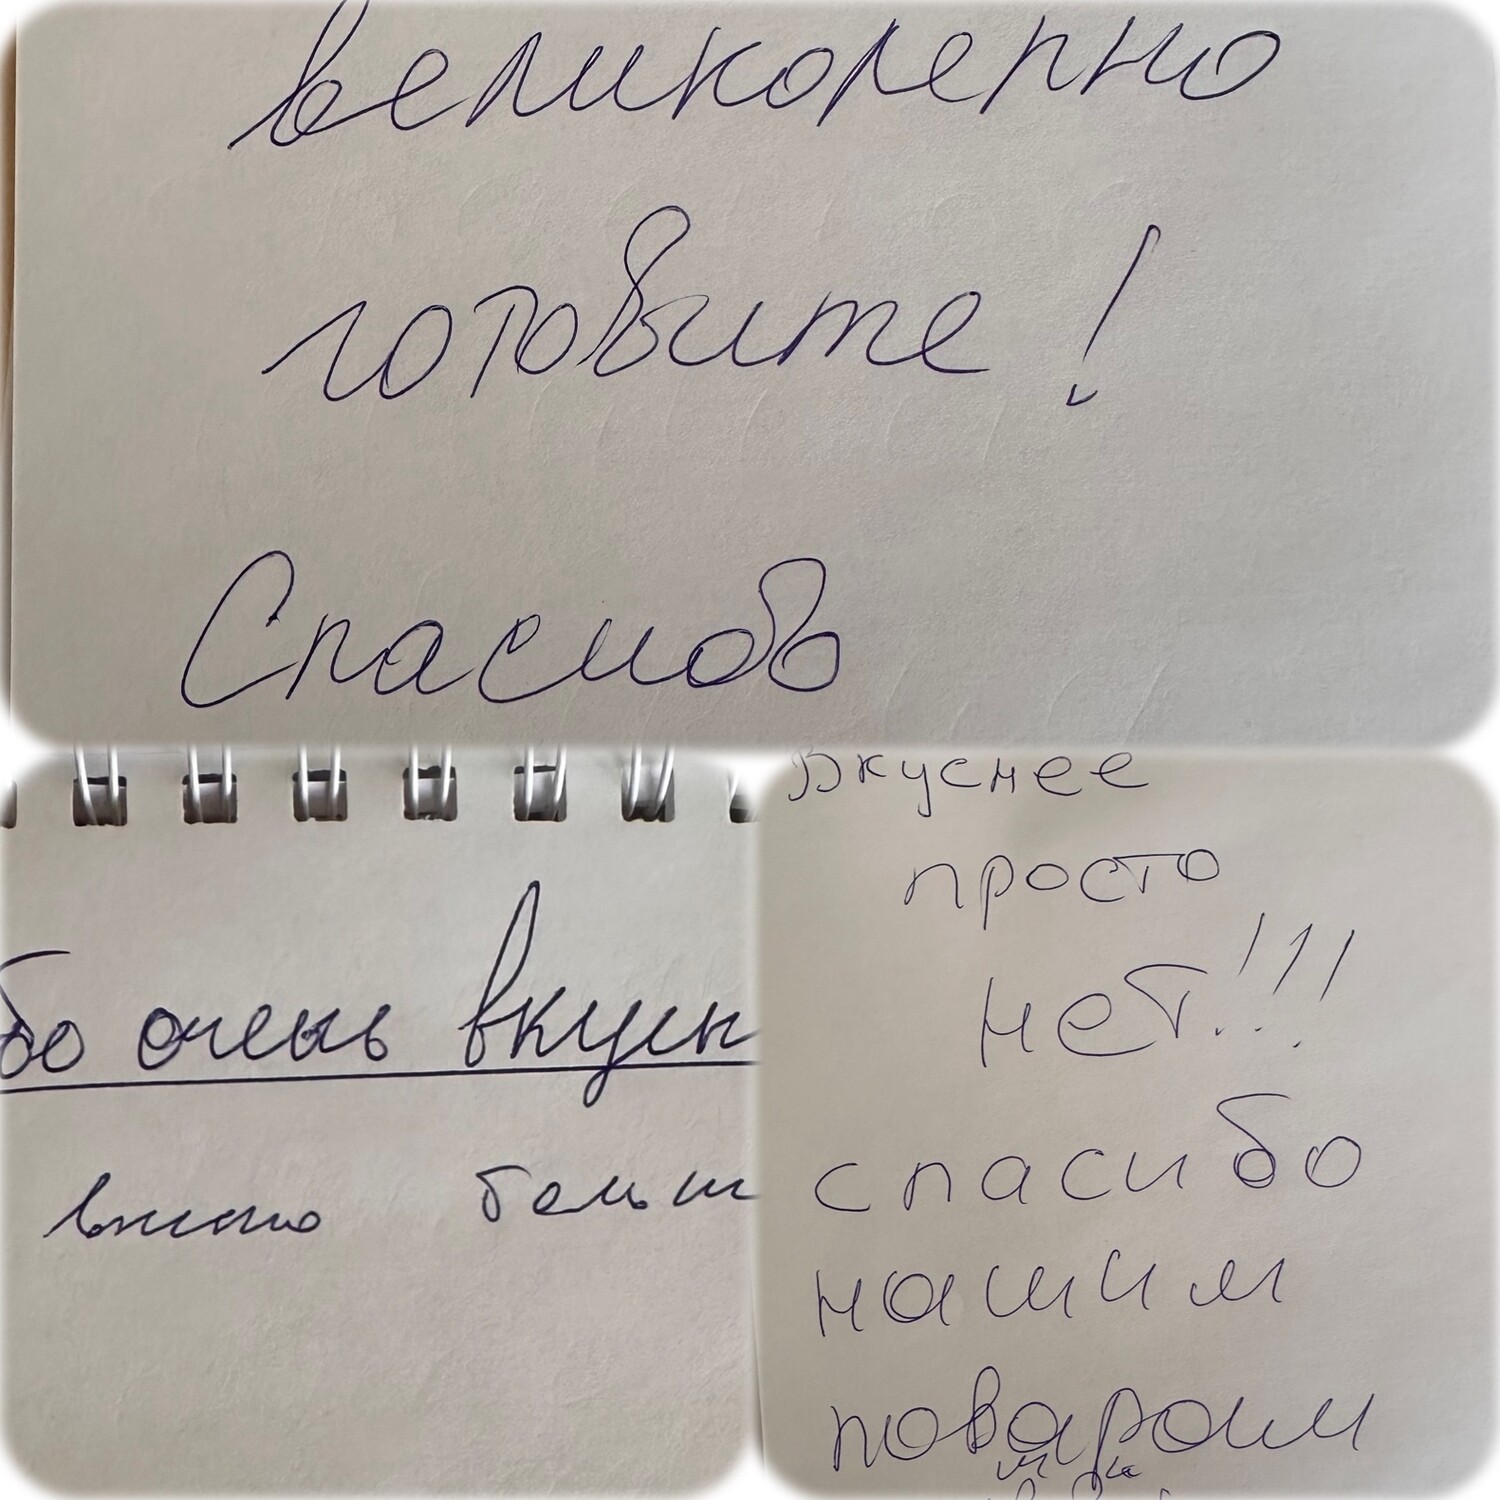 великолепно
готовите!
Спасибо
бо очень вкусн
Вкуснее
просто
нет!!!
спасибо
нашим
поварам